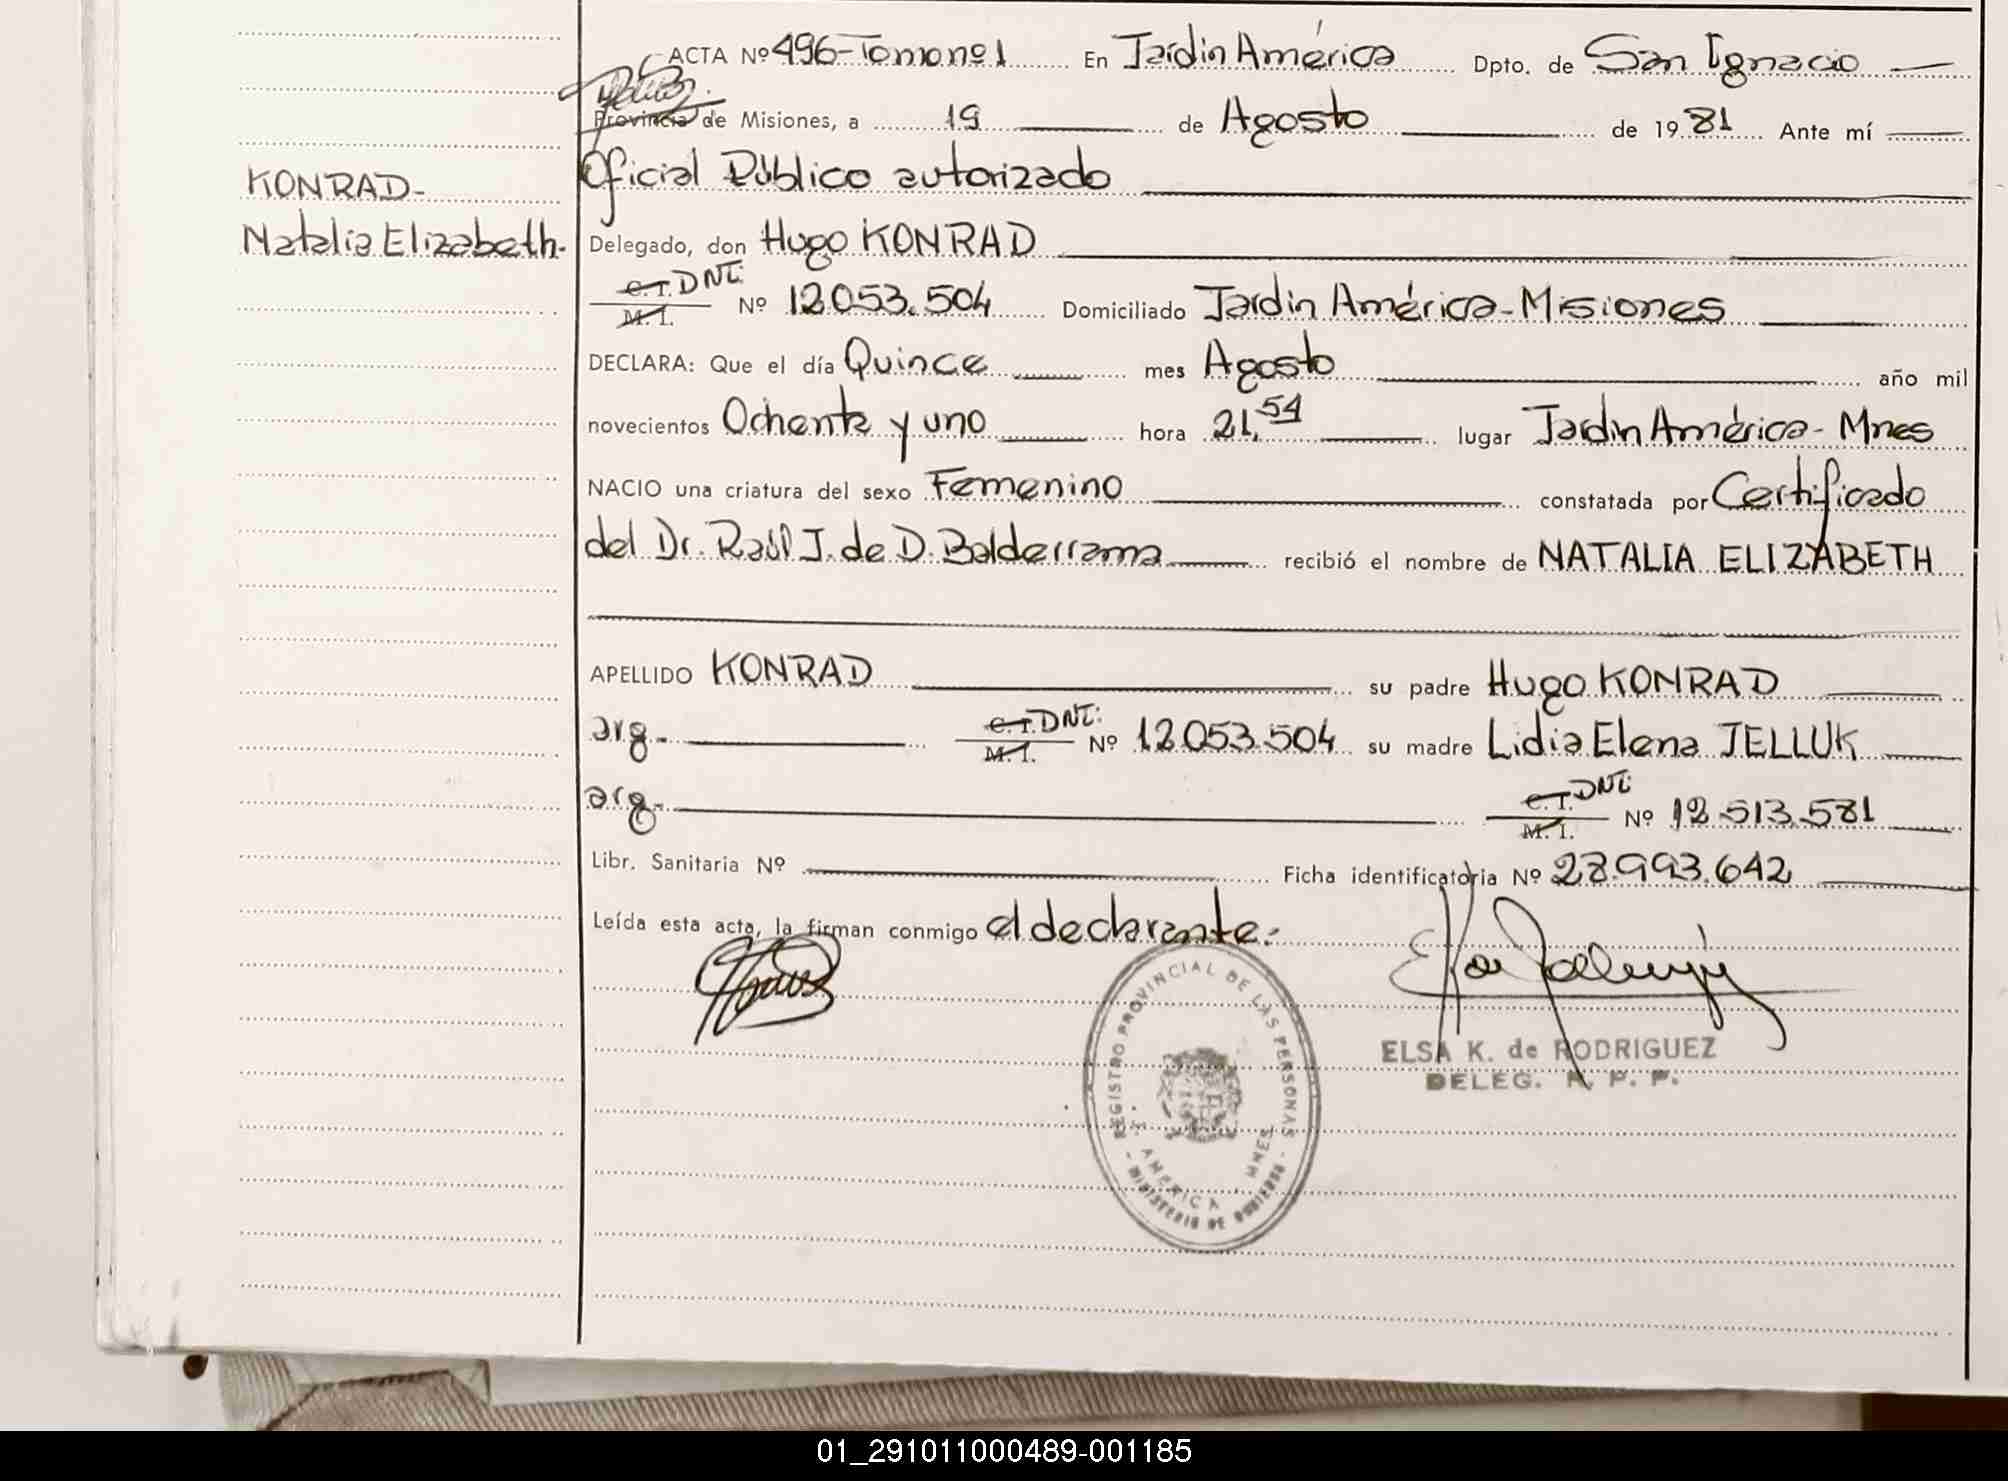 ACTA Nº 496-Tomo nº1 En Jardin América Dpto. de San Ignacio
Provincia de Misiones, a 19 de Agosto de 1981 Ante mí
Oficial Público autorizado
KONRAD-
Natalia Elizabeth.
Delegado, don Hugo KONRAD
C. I. DNI: M. I. Nº 12.053.504 Domiciliado Jardin América-Misiones
DECLARA: Que el día Quince mes Agosto año mil
novecientos Ochenta y uno hora 21,54 lugar Jardin América- Mnes
NACIO una criatura del sexo Femenino constatada por Certificado
del Dr. Raúl J. de D. Balderrama recibió el nombre de NATALIA ELIZABETH
APELLIDO KONRAD su padre Hugo KONRAD
arg.- C. I. DNI: M. I. Nº 12.053.504 su madre Lidia Elena JELLUK
arg.- C. I. DNI: M. I. Nº 12.513.581
Libr. Sanitaria Nº Ficha identificatoria Nº 28.993.642
Leída esta acta, la firman conmigo el declarante.-
REGISTRO PROVINCIAL DE LAS PERSONAS
J. AMERICA MNES.
- MINISTERIO DE GOBIERNO -
ELSA K. de RODRIGUEZ
DELEG. R. P. P.
01_291011000489-001185